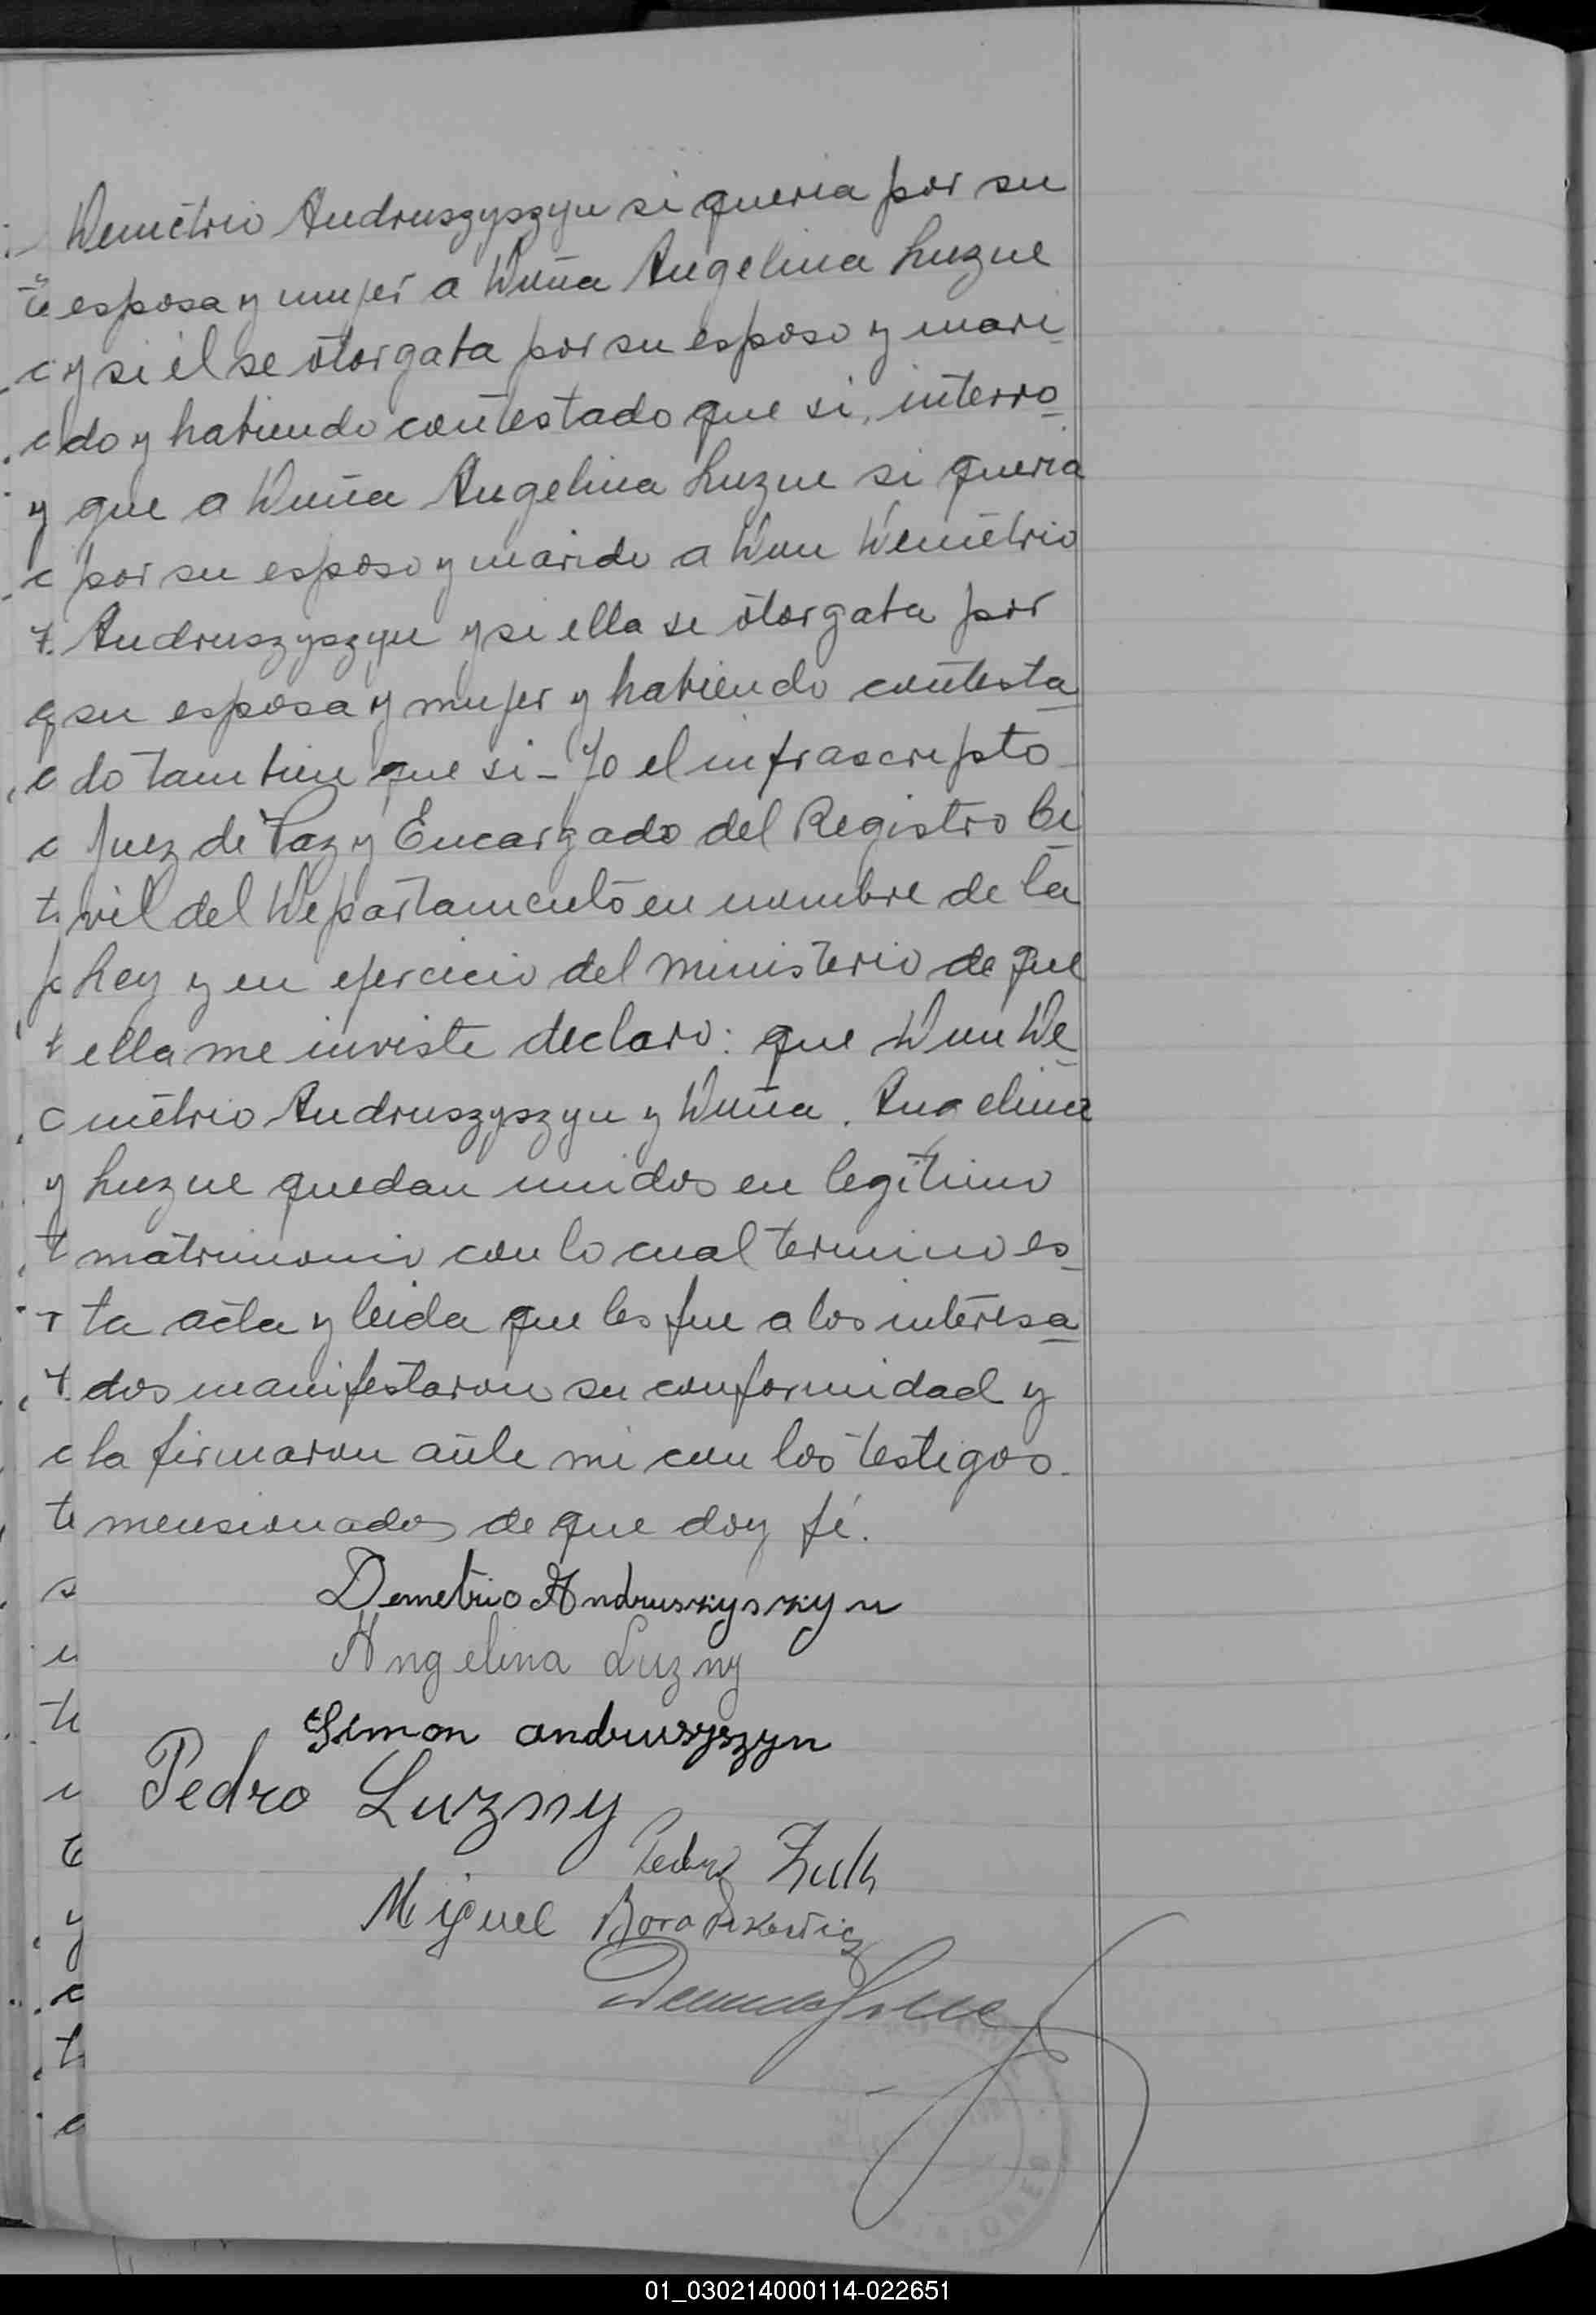 Demétrio Andruszyszyn si queria por su
esposa y mujer a Doña Angelina Luzne
y si él se otorgaba por su esposo y mari
do y habiendo contestado que si, interro
que a Doña Angelina Luzne si queria
por su esposo y marido a Don Demétrio
Andruszyszyn y si ella se otorgaba por
su esposa y mujer y habiendo contesta
do tambien que si - Yo el infrascripto
Juez de Paz y Encargado del Registro Ci
vil del Departamento en nombre de la
Ley y en ejercicio del ministerio de que
ella me inviste declaro: que Don De
métrio Andruszyszyn y Doña. Angelina
Luzne quedan unidos en legitimo
matrimonio con lo cual termino es
ta acta y leida que les fue a los interesa
dos manifestaron su conformidad y
la firmaron ante mi con los testigos
mensionados de que doy fé.
Demetrio Andruszyszyn
Angelina Luzny
Simon andruszyszyn
Pedro Luzny
Pedro Zuk
Miguel
MISIONES
01_030214000114-022651